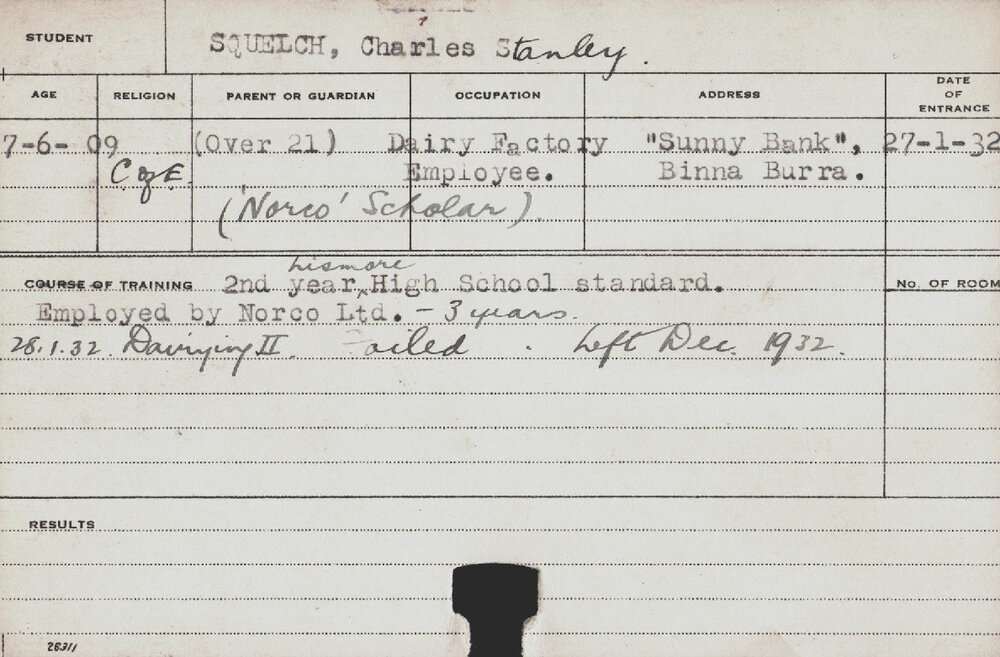 STUDENT SQUELCH, Charles Stanley.
AGE RELIGION PARENT OR GUARDIAN OCCUPATION ADDRESS DATE OF ENTRANCE
7-6-09 (Over 21) Dairy Factory "Sunny Bank", 27-1-32
C of E. Employee. Binna Burra.
('Norco' Scholar).
Lismore
COURSE OF TRAINING 2nd year ^ High School standard. No. OF ROOM
Employed by Norco Ltd. - 3 years.
28.1.32. Dairying II. Failed . Left Dec. 1932.
RESULTS
28311